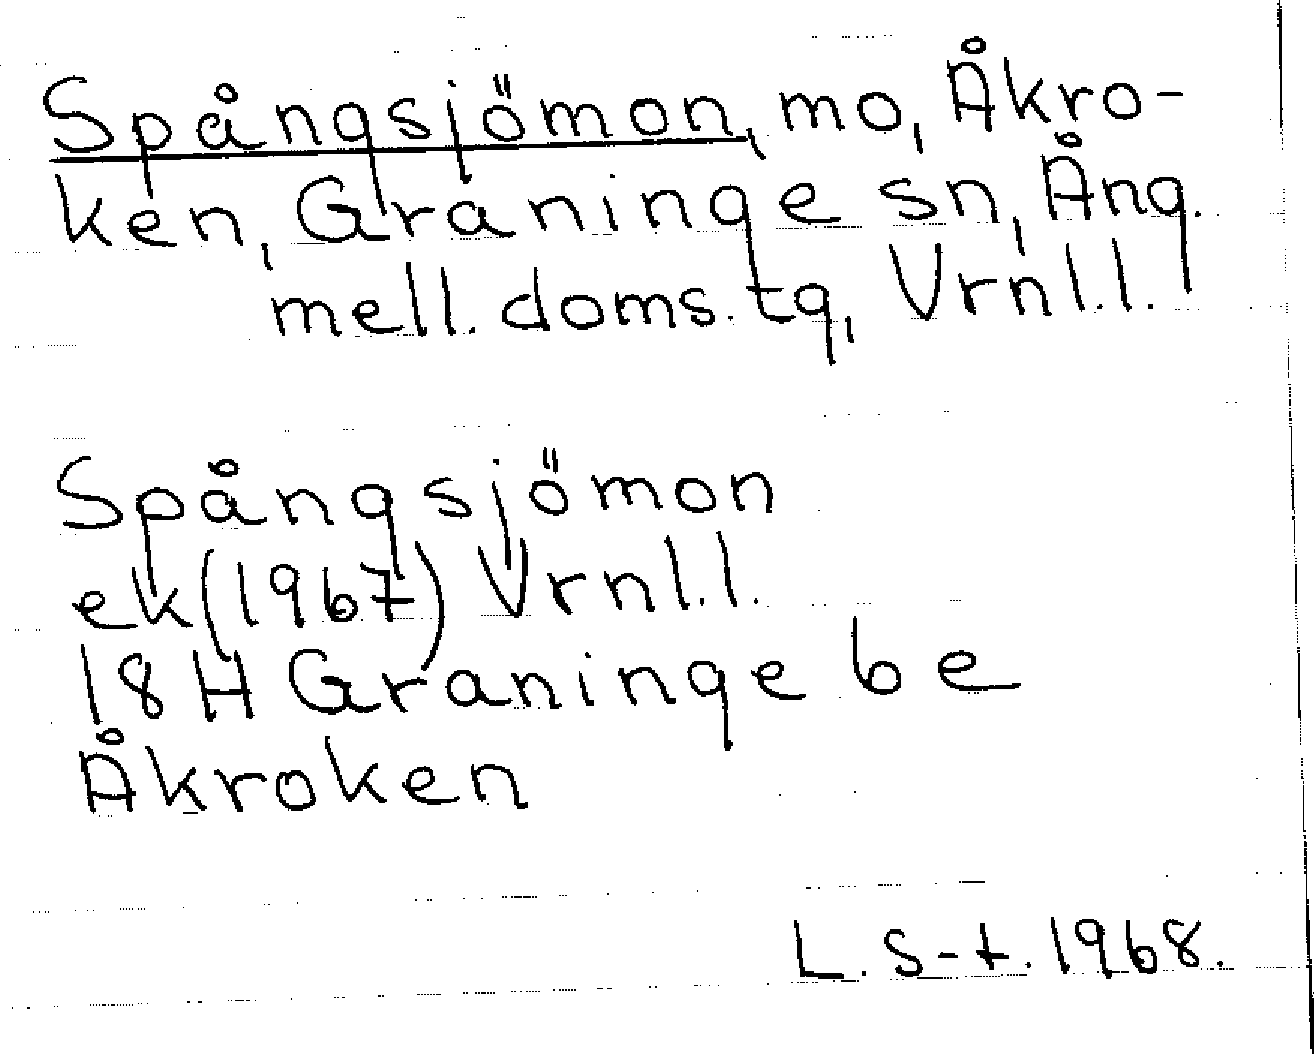 Spångsjömon, mo, Åkro-
ken, Graninge sn, Ång.
mell. doms. tg, Vrnl.l.
Spångsjömon
ek (1967) Vrnl.l.
18 H Graninge 6 e
Åkroken
L. S-t. 1968.